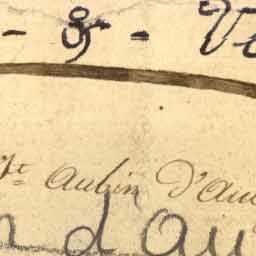 - & - V
St Aubin D'Au
n d au